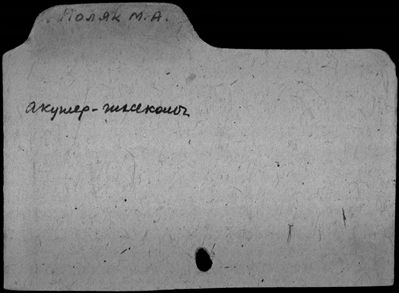 Поляк М.А.
акушер-гинеколог